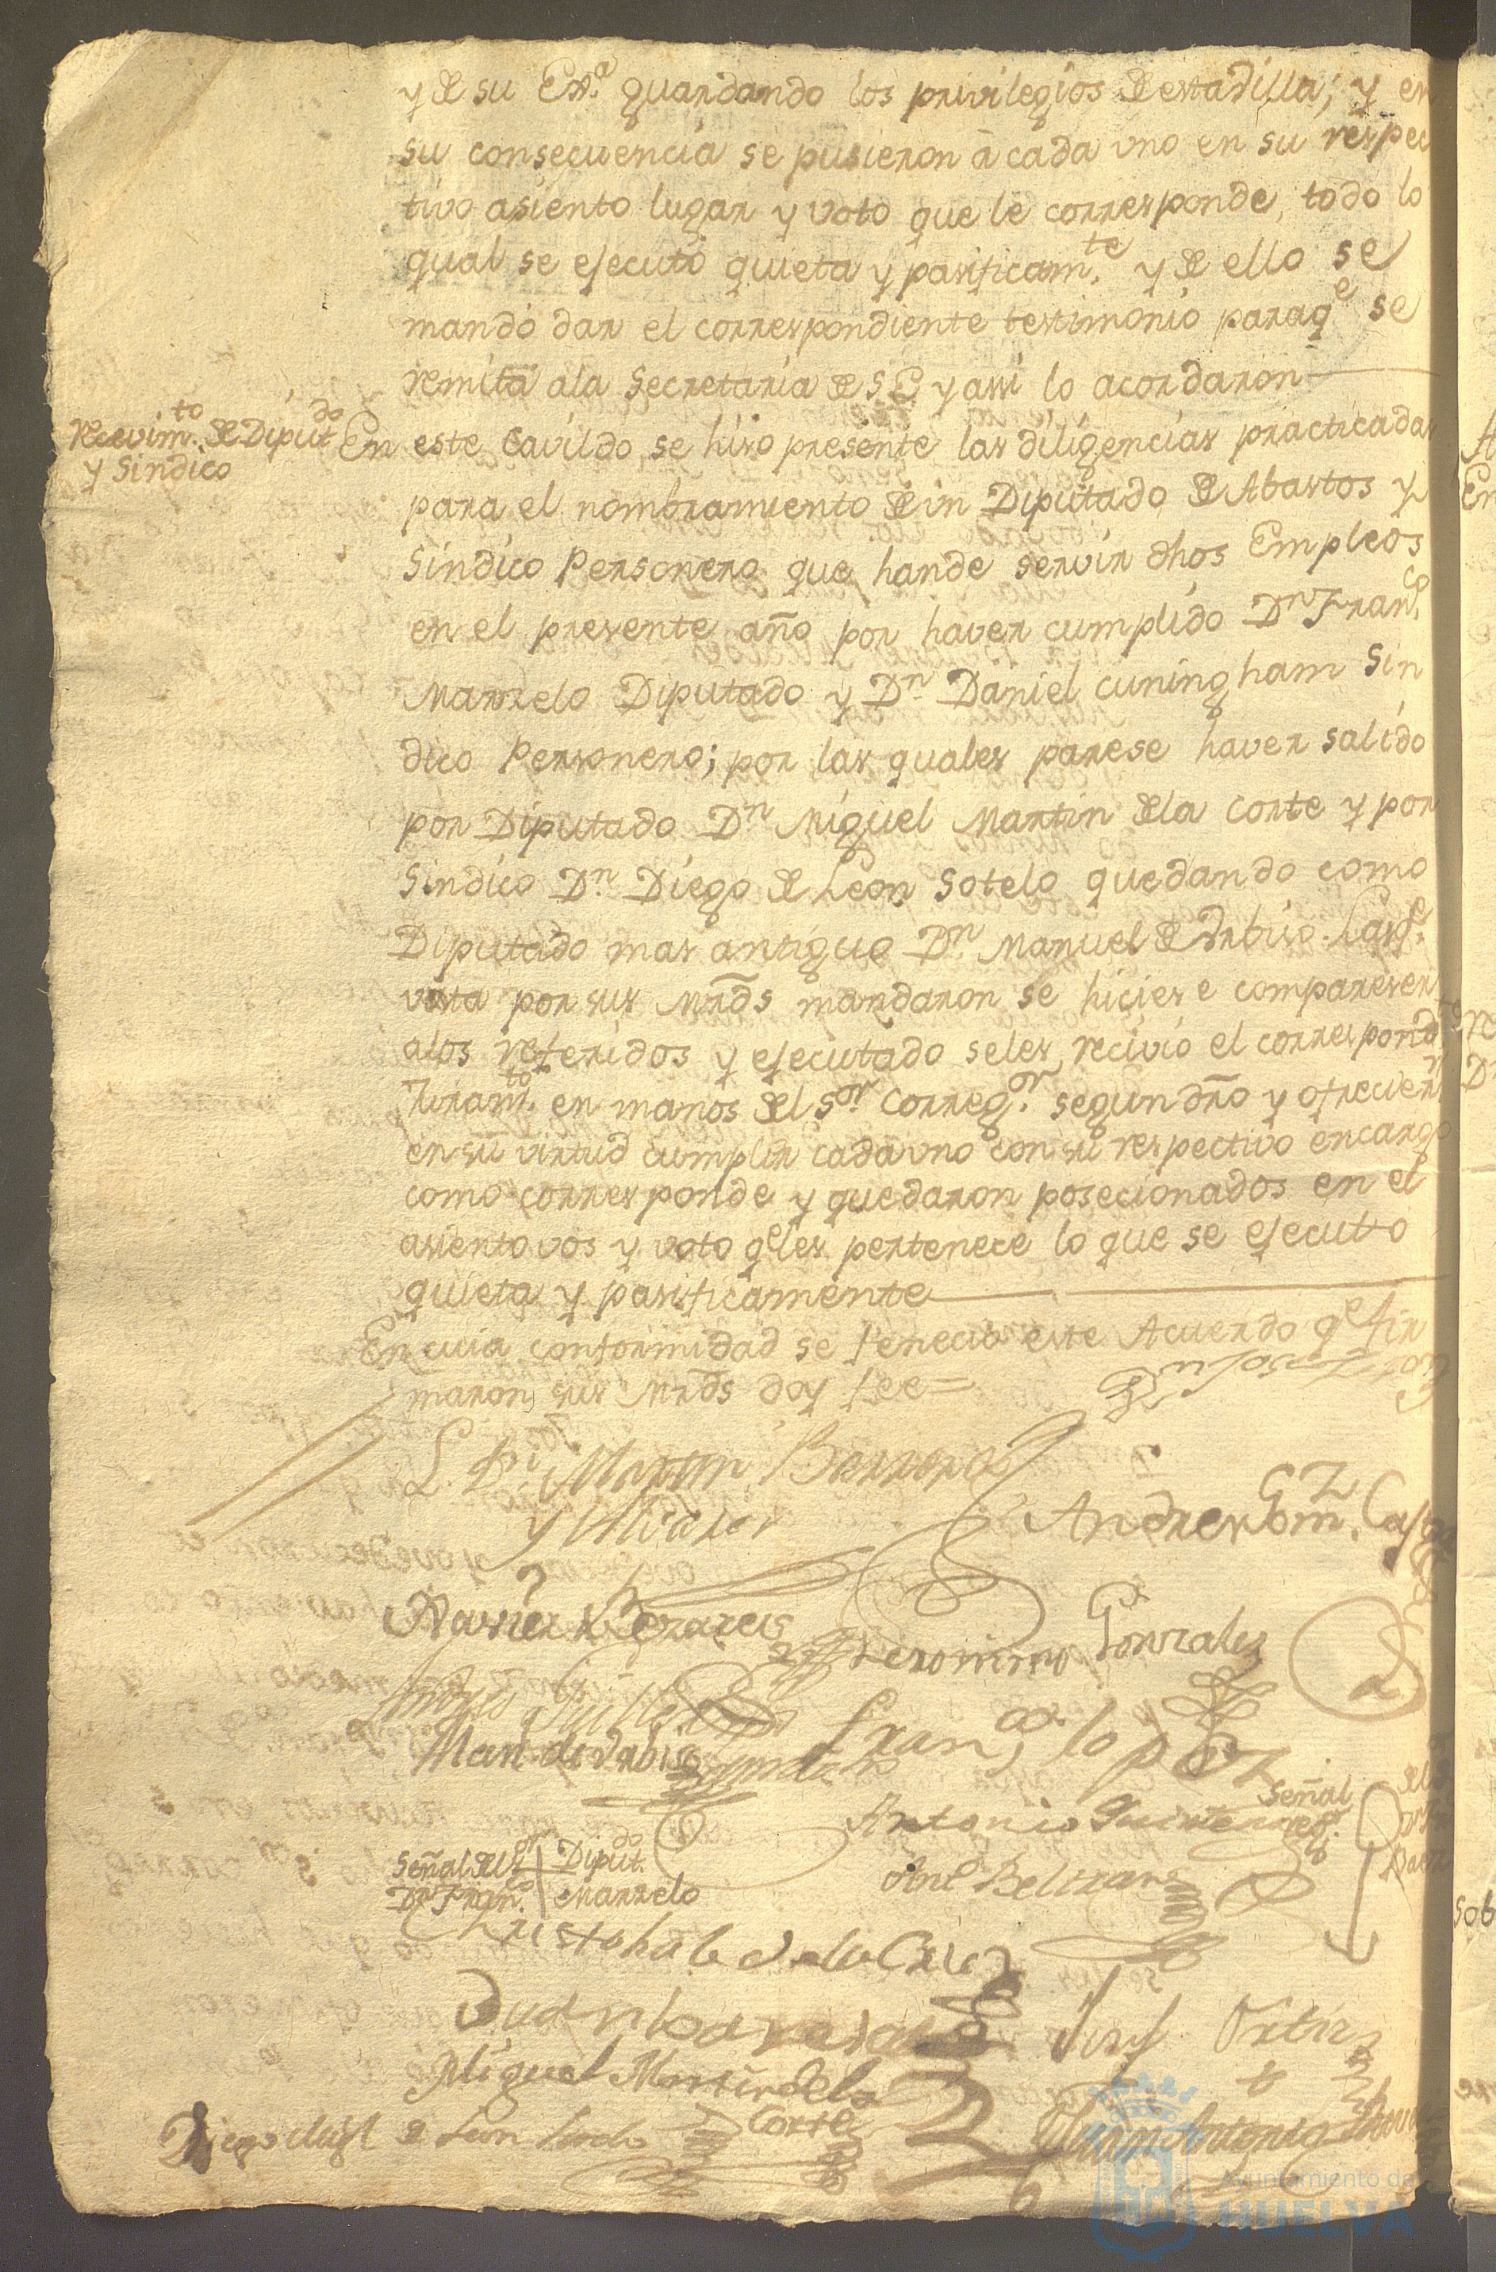 y de su Exª guardando los privilegios de esta Villa; y en
su consecuencia se pusieron à cada vno en su respec
tivo asiento lugar y voto que le corresponde, todo lo
qual se ejecutó quieta y pasificamte. y de ello se
mandó dar el correspondiente testimonio paraqe se
remita ala Secretaria de S E y assi lo acordaron
Recevimto. de Diputdo
y Sindico
En este Cavildo se hiso presente las diligencias practicadas
para el nombramiento de un Diputado de Abastos y
Sindico Personero que hande servir dhos Empleos
en el presente año por haver cumplido Dn Franco.
Marzelo Diputado y Dn Daniel cuningham Sin
dico Personero; por las quales parese haver salido
por Diputado Dn Miguel Martin dela Corte y por
Sindico Dn Diego de Leon Sotelo quedando como
Diputado mas antiguo Dn Manuel de Vrbiso.
vista por sus Mrds mandaron se hiciese compareser
alos referidos y ejecutado seles recivió el correspond
Juramto. en manos del Sor Corregor. segun dro y ofrecier
en su virtud cumplir cada vno con su respectivo encargo
como corresponde y quedaron posecionados en el
asiento vos y voto qe les pertenece lo que se ejecuto
quieta y pasificamente
En cuia conformidad se fenecio este Acuerdo qe fir
maron sus Mrds doy fee=
L. Dn Martin Barrera
y
Andres Gomz. Castra
Xavier
Geronimo Gonzales
Man. de Vrbiso
Franco. lopez
Señal
Antonio Quintero
Señal del Sor Diputdo
Dn Franco. Marzelo
Ant Beltran
Christobal de la Cruz
Juan
Josef Ortiz
Miguel Martin de la
Corte
Diego de Leon Sotelo
Antonio
Ayuntamiento de
HUELVA